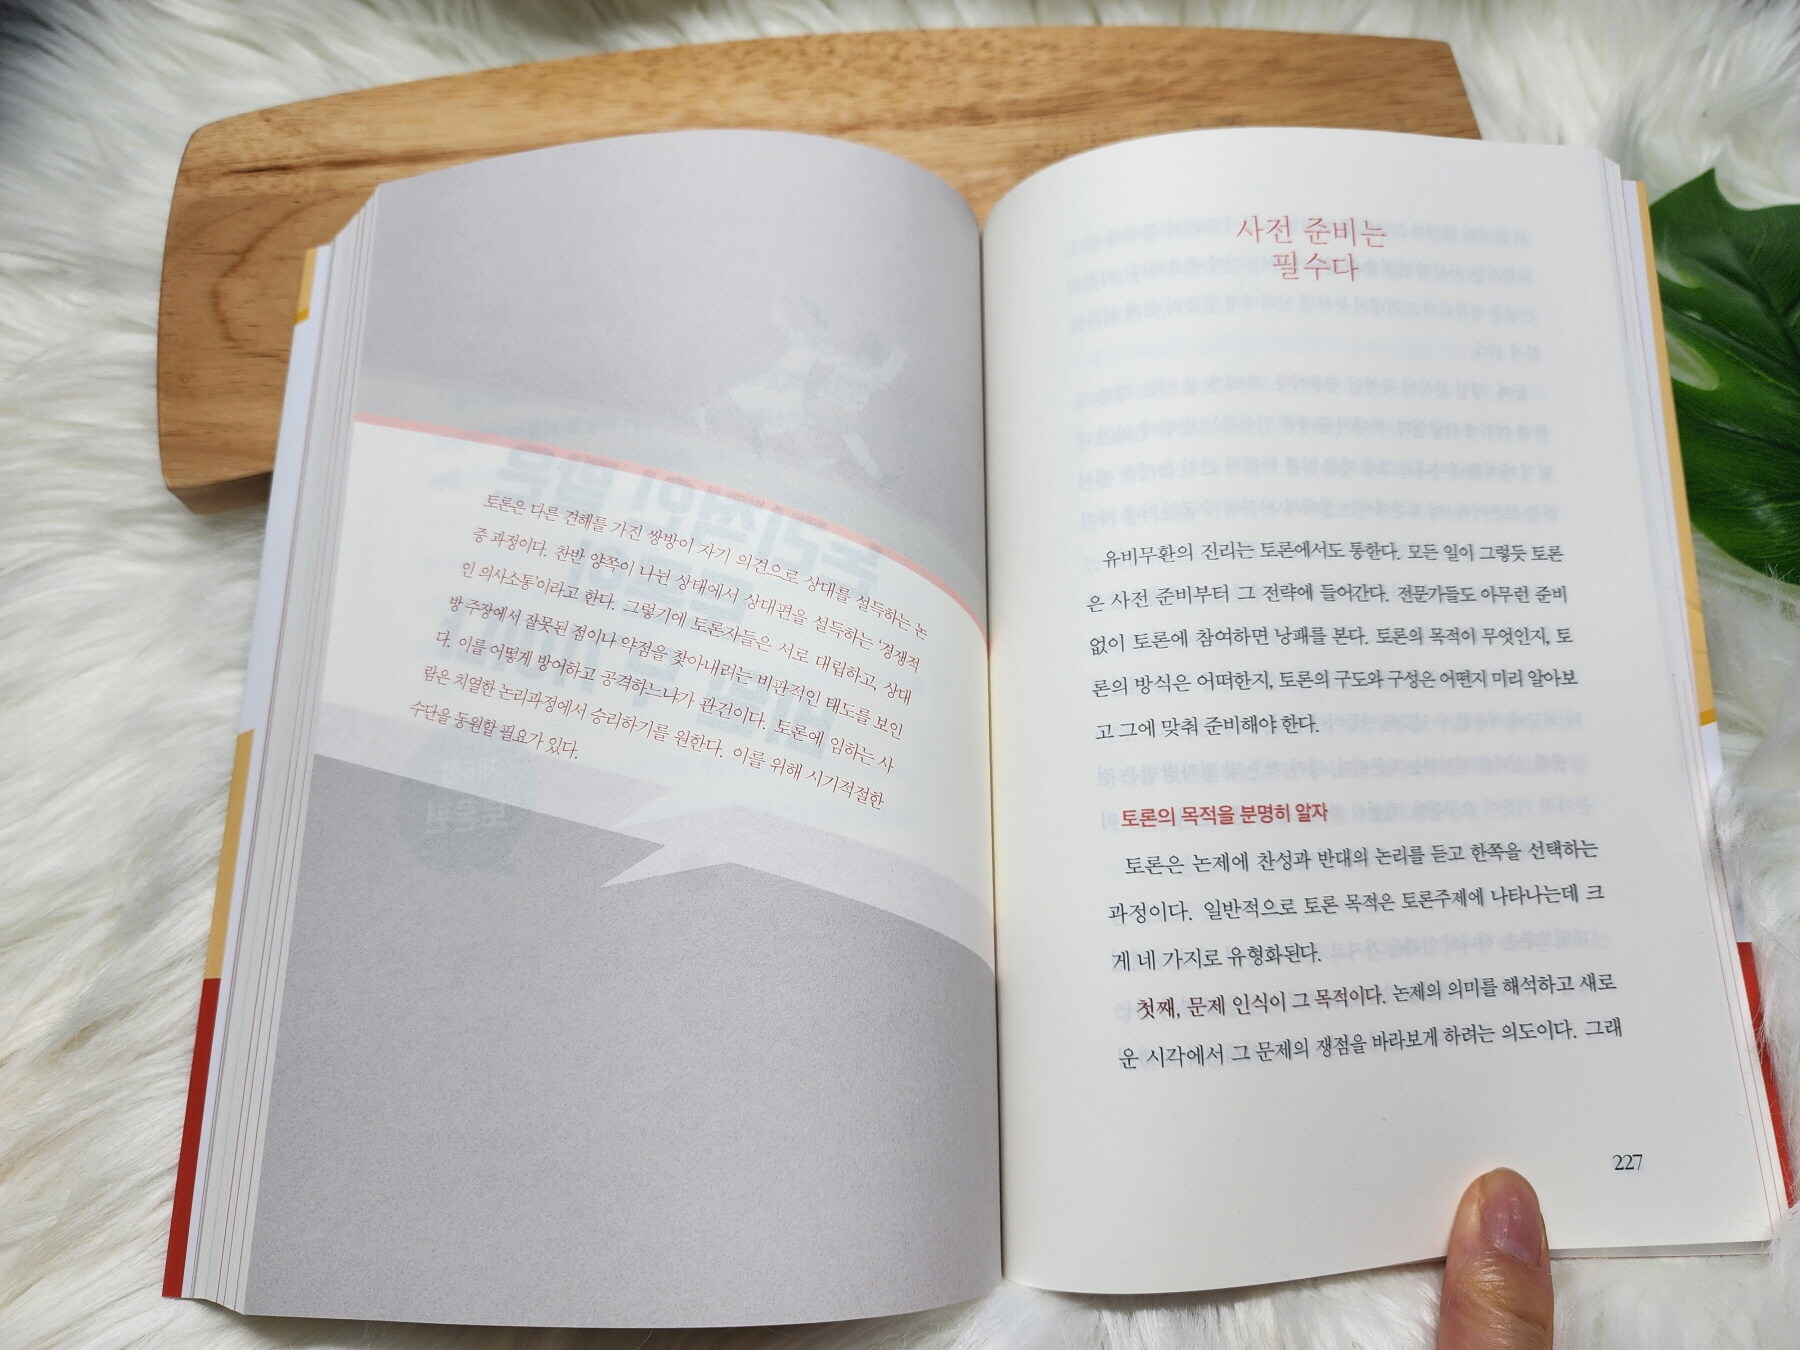 토론은 다른 견해를 가진 쌍방이 자기 의견으로 상대를 설득하는 논
증 과정이다. 찬반 양쪽이 나뉜 상태에서 상대편을 설득하는 '경쟁적
인 의사소통'이라고 한다. 그렇기에 토론자들은 서로 대립하고, 상대
방 주장에서 잘못된 점이나 약점을 찾아내려는 비판적인 태도를 보인
다. 이를 어떻게 방어하고 공격하느냐가 관건이다. 토론에 임하는 사
람은 치열한 논리과정에서 승리하기를 원한다. 이를 위해 시기적절한
수단을 동원할 필요가 있다.
사전 준비는
필수다
유비무환의 진리는 토론에서도 통한다. 모든 일이 그렇듯 토론
은 사전 준비부터 그 전략에 들어간다. 전문가들도 아무런 준비
없이 토론에 참여하면 낭패를 본다. 토론의 목적이 무엇인지, 토
론의 방식은 어떠한지, 토론의 구도와 구성은 어떤지 미리 알아보
고 그에 맞춰 준비해야 한다.
토론의 목적을 분명히 알자
토론은 논제에 찬성과 반대의 논리를 듣고 한쪽을 선택하는
과정이다. 일반적으로 토론 목적은 토론주제에 나타나는데 크
게 네 가지로 유형화된다.
첫째, 문제 인식이 그 목적이다. 논제의 의미를 해석하고 새로
운 시각에서 그 문제의 쟁점을 바라보게 하려는 의도이다. 그래
227